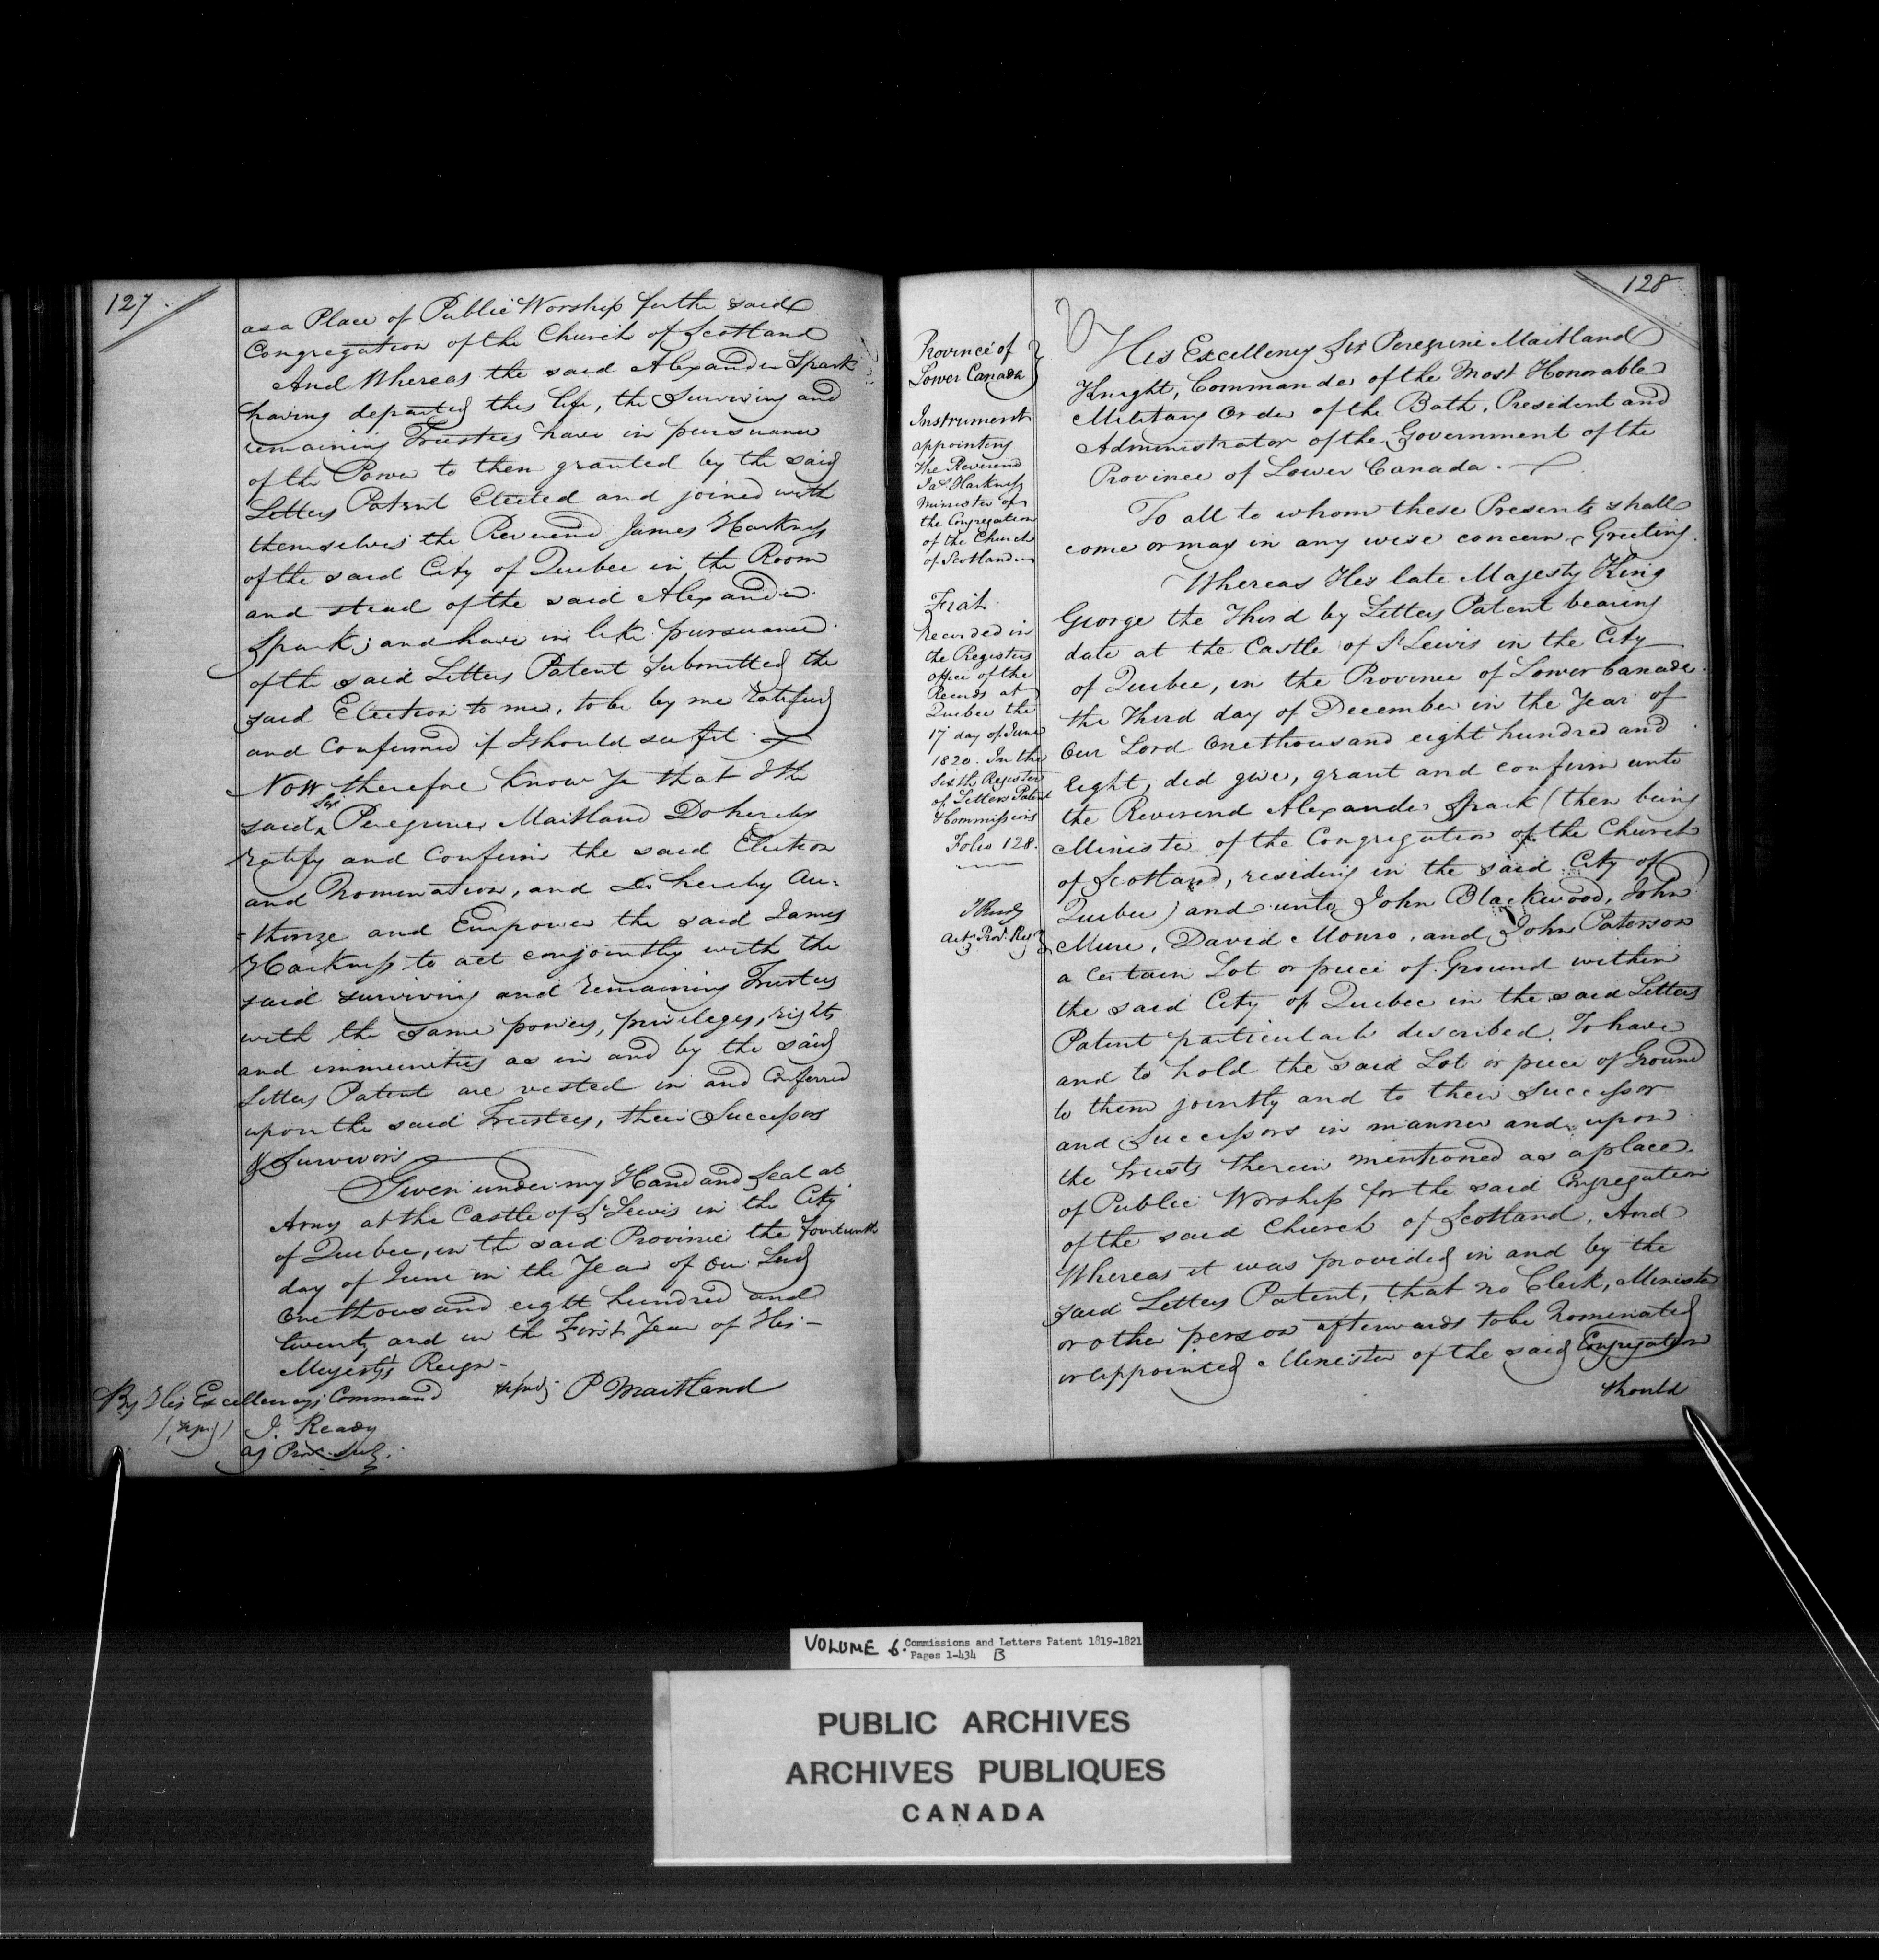 127.
as a Place of Public Worship for the said
Congregation of the Church of Scotland
And Whereas the said Alexander Spark
having departed this life, the Surviving and
remaining Trustees have in pursuance
of the Power to them granted by the said
Letters Patent Elected and joined with
themselves the Reverend James Harkness
of the said City of Quebec in the Room
and stead of the said Alexander
Spark; and have in like pursuance
of the said Letters Patent Submitted the
said Election to me, to be by me ratified
and Confirmed if I should see fit
Now therefore Know Ye that I the
said Sir Peregrine Maitland Do hereby
ratify and Confirm the said Election
and Nomination, and Do hereby Au-
-thorize and Empower the said James
Harkness to act conjointly with the
said surviving and remaining Trustees
with the same powers, privileges, rights
and immunities as in and by the said
Letters Patent are vested in and Conferred
upon the said Trustees, their Successors
& Survivors
Given under my Hand and Seal at
Arms at the Castle of St Lewis in the City
of Quebec, in the said Province the fourteenth
day of June in the Year of Our Lord
One thousand eight hundred and
twenty and in the First Year of His-
Majesty's Reign-
signd P Maitland
By His Excellencys Command
J. Ready
128
Province of
Lower Canada
Instrument
appointing
The Reverend
Jas Harkness
Minister of
the Congregation
of the Church
of Scotland
Fiat
Recorded in
the Registers
Office of the
Records at
Quebec the
17 day of June
1820. In the
Sixth Register
of Letters Patent
& Commissions
Folio 128.
J Ready
Actg Prov. Regr
His Excellency Sir Peregrine Maitland
Knight, Commander of the Most Honorable
Military Order of the Bath, President and
Administrator of the Government of the
Province of Lower Canada.
To all to whom these Presents shall
come or may in any wise concern Greeting.
Whereas His late Majesty King
George the Third by Letters Patent bearing
date at the Castle of St Lewis in the City
of Quebec, in the Province of Lower Canada
the Third day of December in the Year of
Our Lord One thousand eight hundred and
Eight, did give, grant and confirm unto
the Reverend Alexander Spark (then being
Minister of the Congregation of the Church
of Scotland, residing in the said City of
Quebec) and unto John Blackwood, John
Mure, David Monro, and John Paterson
a Certain Lot or piece of Ground within
the said City of Quebec in the said Letters
Patent particularly described. To have
and to hold the said Lot or piece of Ground
to them jointly and to their Successor
and Successors in manner and upon
the trusts therein mentioned as a place
of Public Worship for the said Congregation
of the said Church of Scotland. And
Whereas it was provided in and by the
said Letters Patent, that no Clerk, Minister
or other person afterwards to be Nominated
or Appointed Minister of the said Congregation
should
VOLUME 6. Commissions and Letters Patent 1819-1821
Pages 1-434 B
PUBLIC ARCHIVES
ARCHIVES PUBLIQUES
CANADA